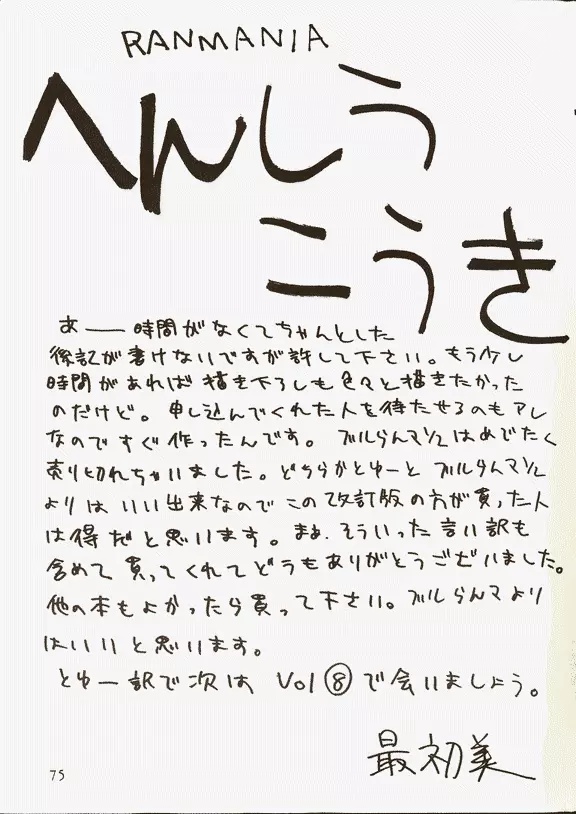 RANMANIA
へんしう
こうき
あー時間がなくてちゃんとした
後記が書けないですが許して下さい。もう少し
時間があれば描き下ろしも色々と描きたかった
のだけど。申し込んでくれた人を待たせるのもアレ
なのですぐ作ったんです。ブルらんマ1/2はめでたく
売り切れちゃいました。どちらかとゆーとブルらんマ1/2
よりはいい出来なのでこの改訂版の方が買った人
は得だと思います。まぁ、そういった言い訳も
含めて買ってくれてどうもありがとうございました。
他の本もよかったら買って下さい。ブルらんマより
はいいと思います。
とゆー訳で次はVol⑧で会いましょう。
最初美
75